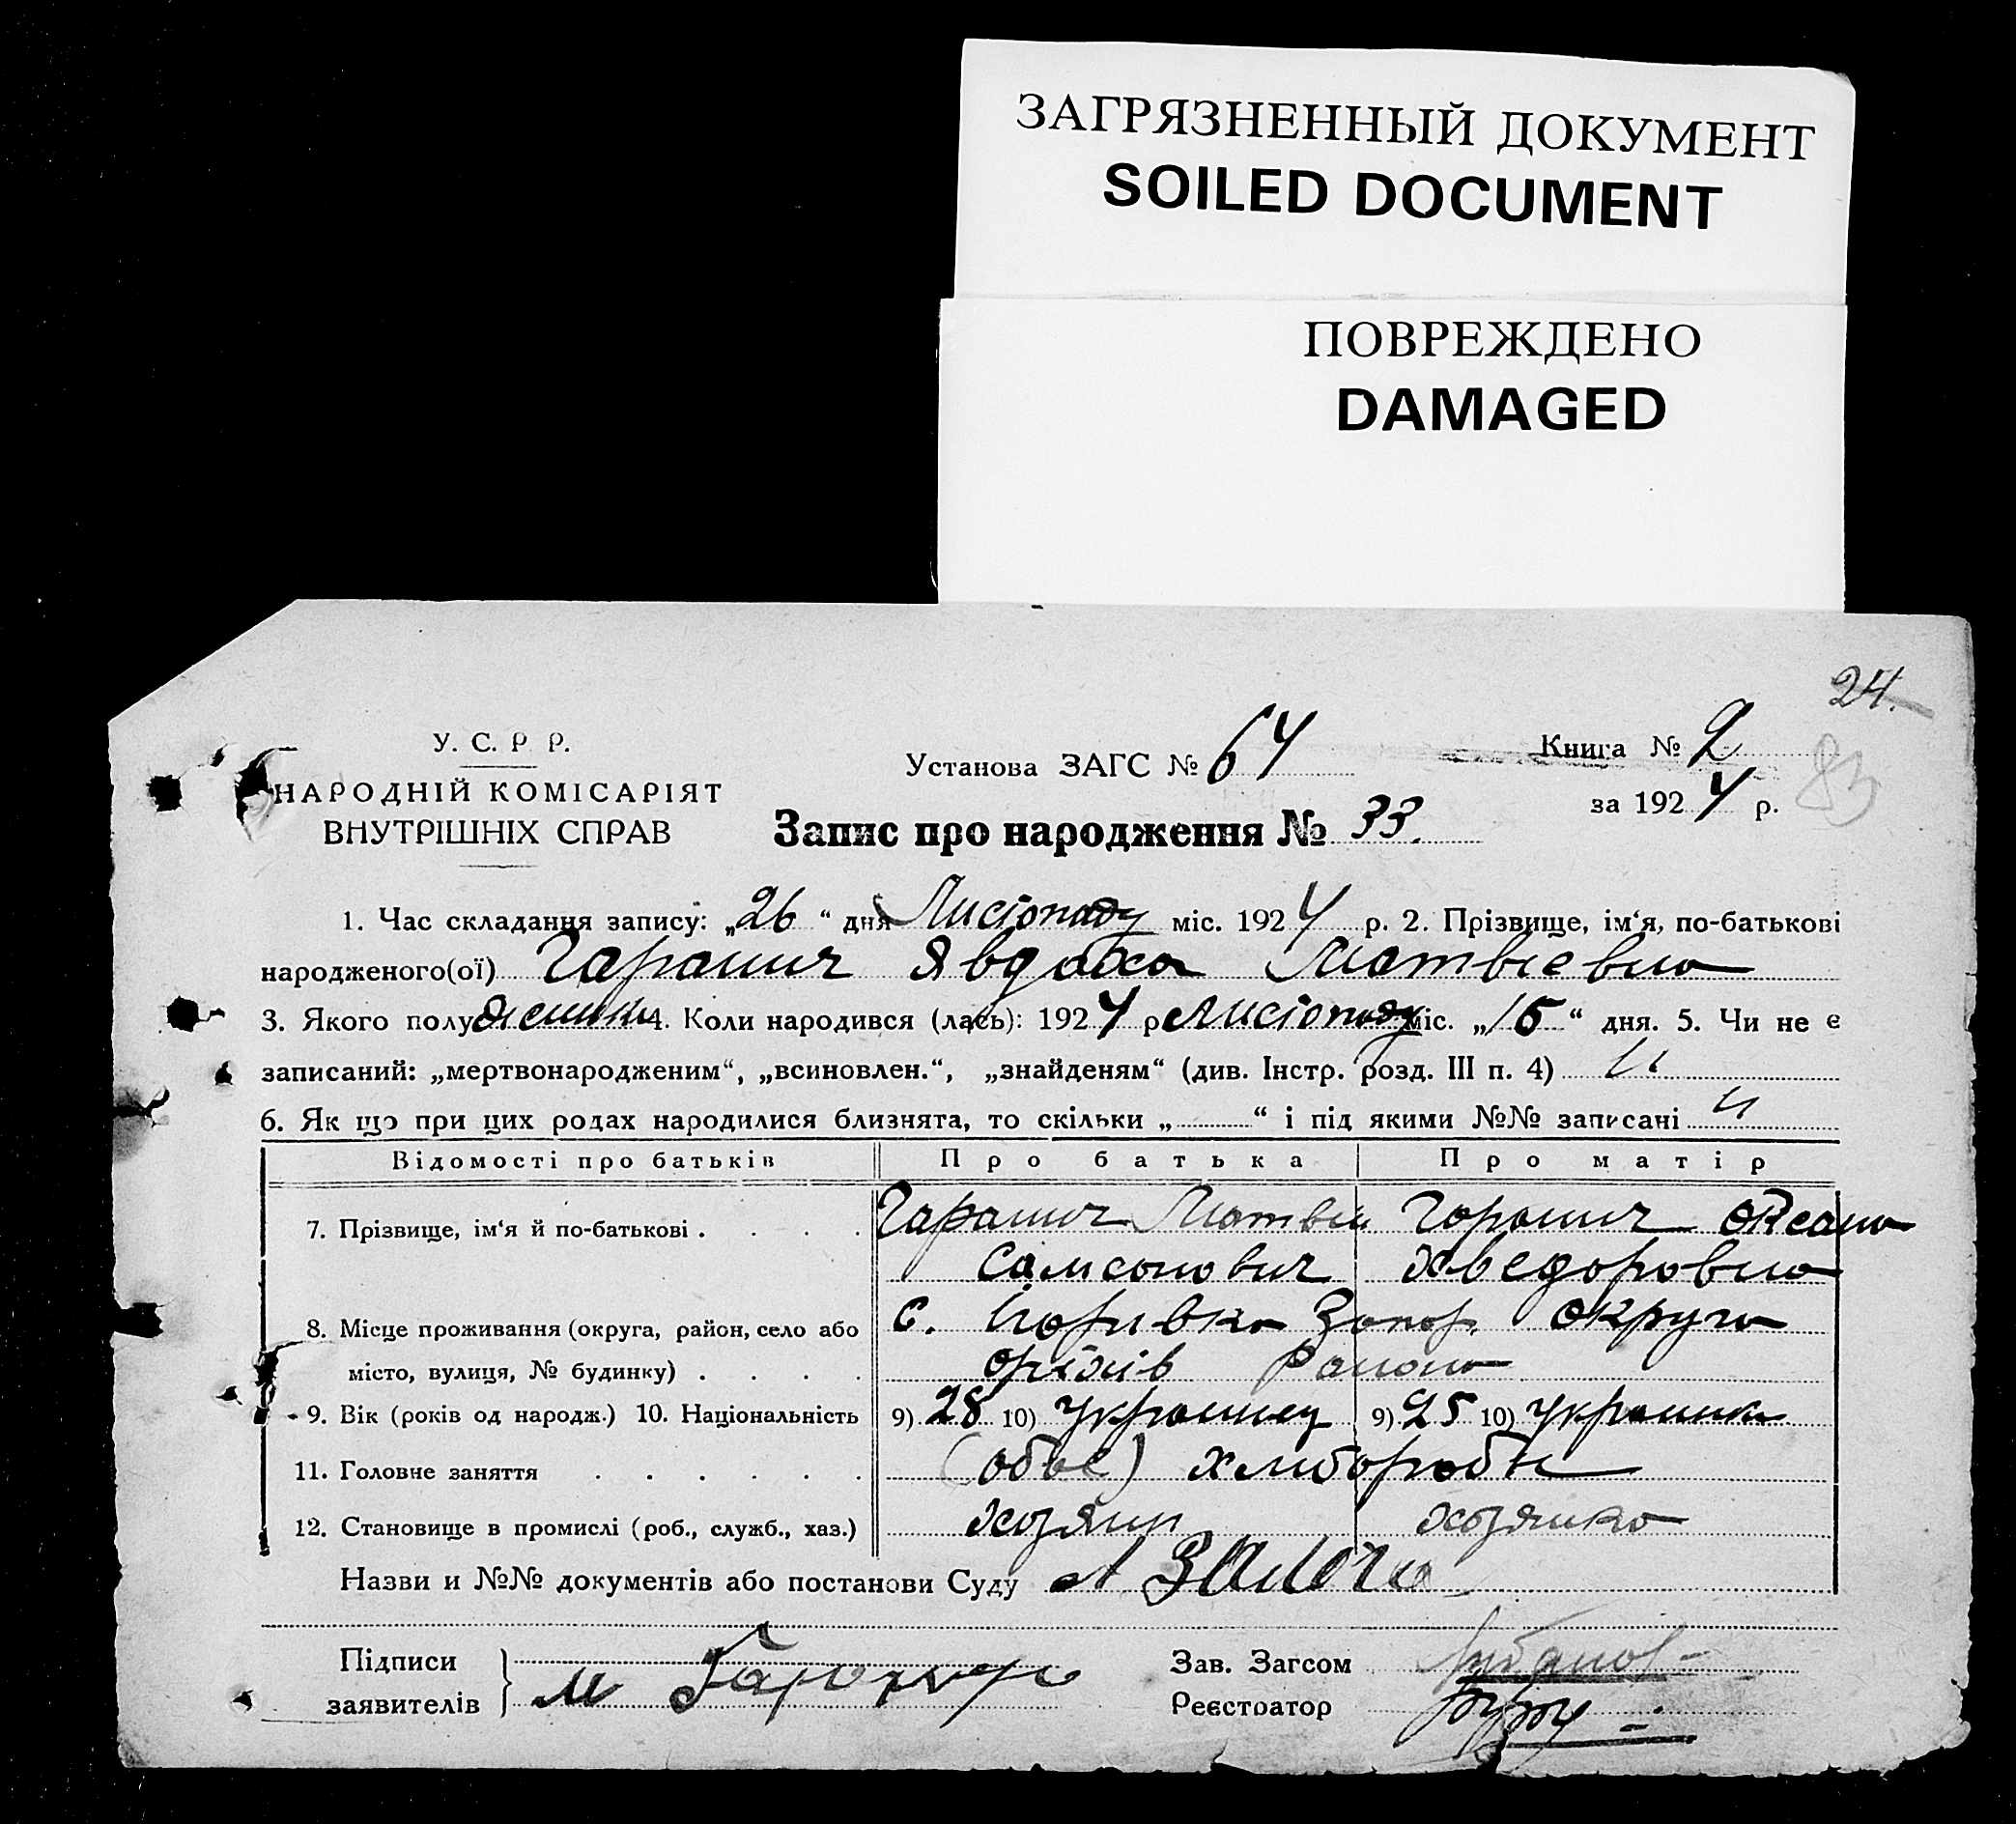 ЗАГРЯЗНЕННЫЙ ДОКУМЕНТ
SOILED DOCUMENT
ПОВРЕЖДЕНО
DAMAGED
24.
83
У. С. Р Р.
НАРОДНІЙ КОМІСАРІЯТ
ВНУТРІШНІХ СПРАВ
Установа ЗАГС № 64
Книга № 2
за 1924 р.
Запис про народження № 33.
1. Час складання запису: „26“ дня Листопаду міс. 1924 р. 2. Прізвище, ім‘я, по-батькові
народженого(ої) Гаранич Явдоха Матвіевна
3. Якого полу 4. Коли народився (лась): 1924 р Листопаду міс. „15“ дня. 5. Чи не є
записаний: „мертвонародженим“, „всиновлен.“, „знайденям“ (див. Інстр. розд. III п. 4)
6. Як що при цих родах народилися близнята, то скільки „ “ і під якими №№ записані
Відомості про батьків Про батька Про матір
7. Прізвище, ім‘я й по-батькові . . . . Гаранич Матвій Гаранич
Самсонович Хведоровна
8. Місце проживання (округа, район, село або с. Запор. округа
місто, вулиця, № будинку) . . . . Оріхів Района
9. Вік (років од народж.) 10. Національність 9) 28 10) Украинец 9) 25 10) Украинка
11. Головне заняття . . . . . . (обое)
12. Становище в промислі (роб., служб., хаз.) хозяин хозяйка
Назви и №№ документів або постанови Суду
Підписи
заявителів М
Зав. Загсом
Реєстратор